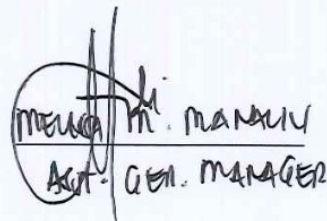 MELISSA M. MANALILI
ASST. GEN. MANAGER